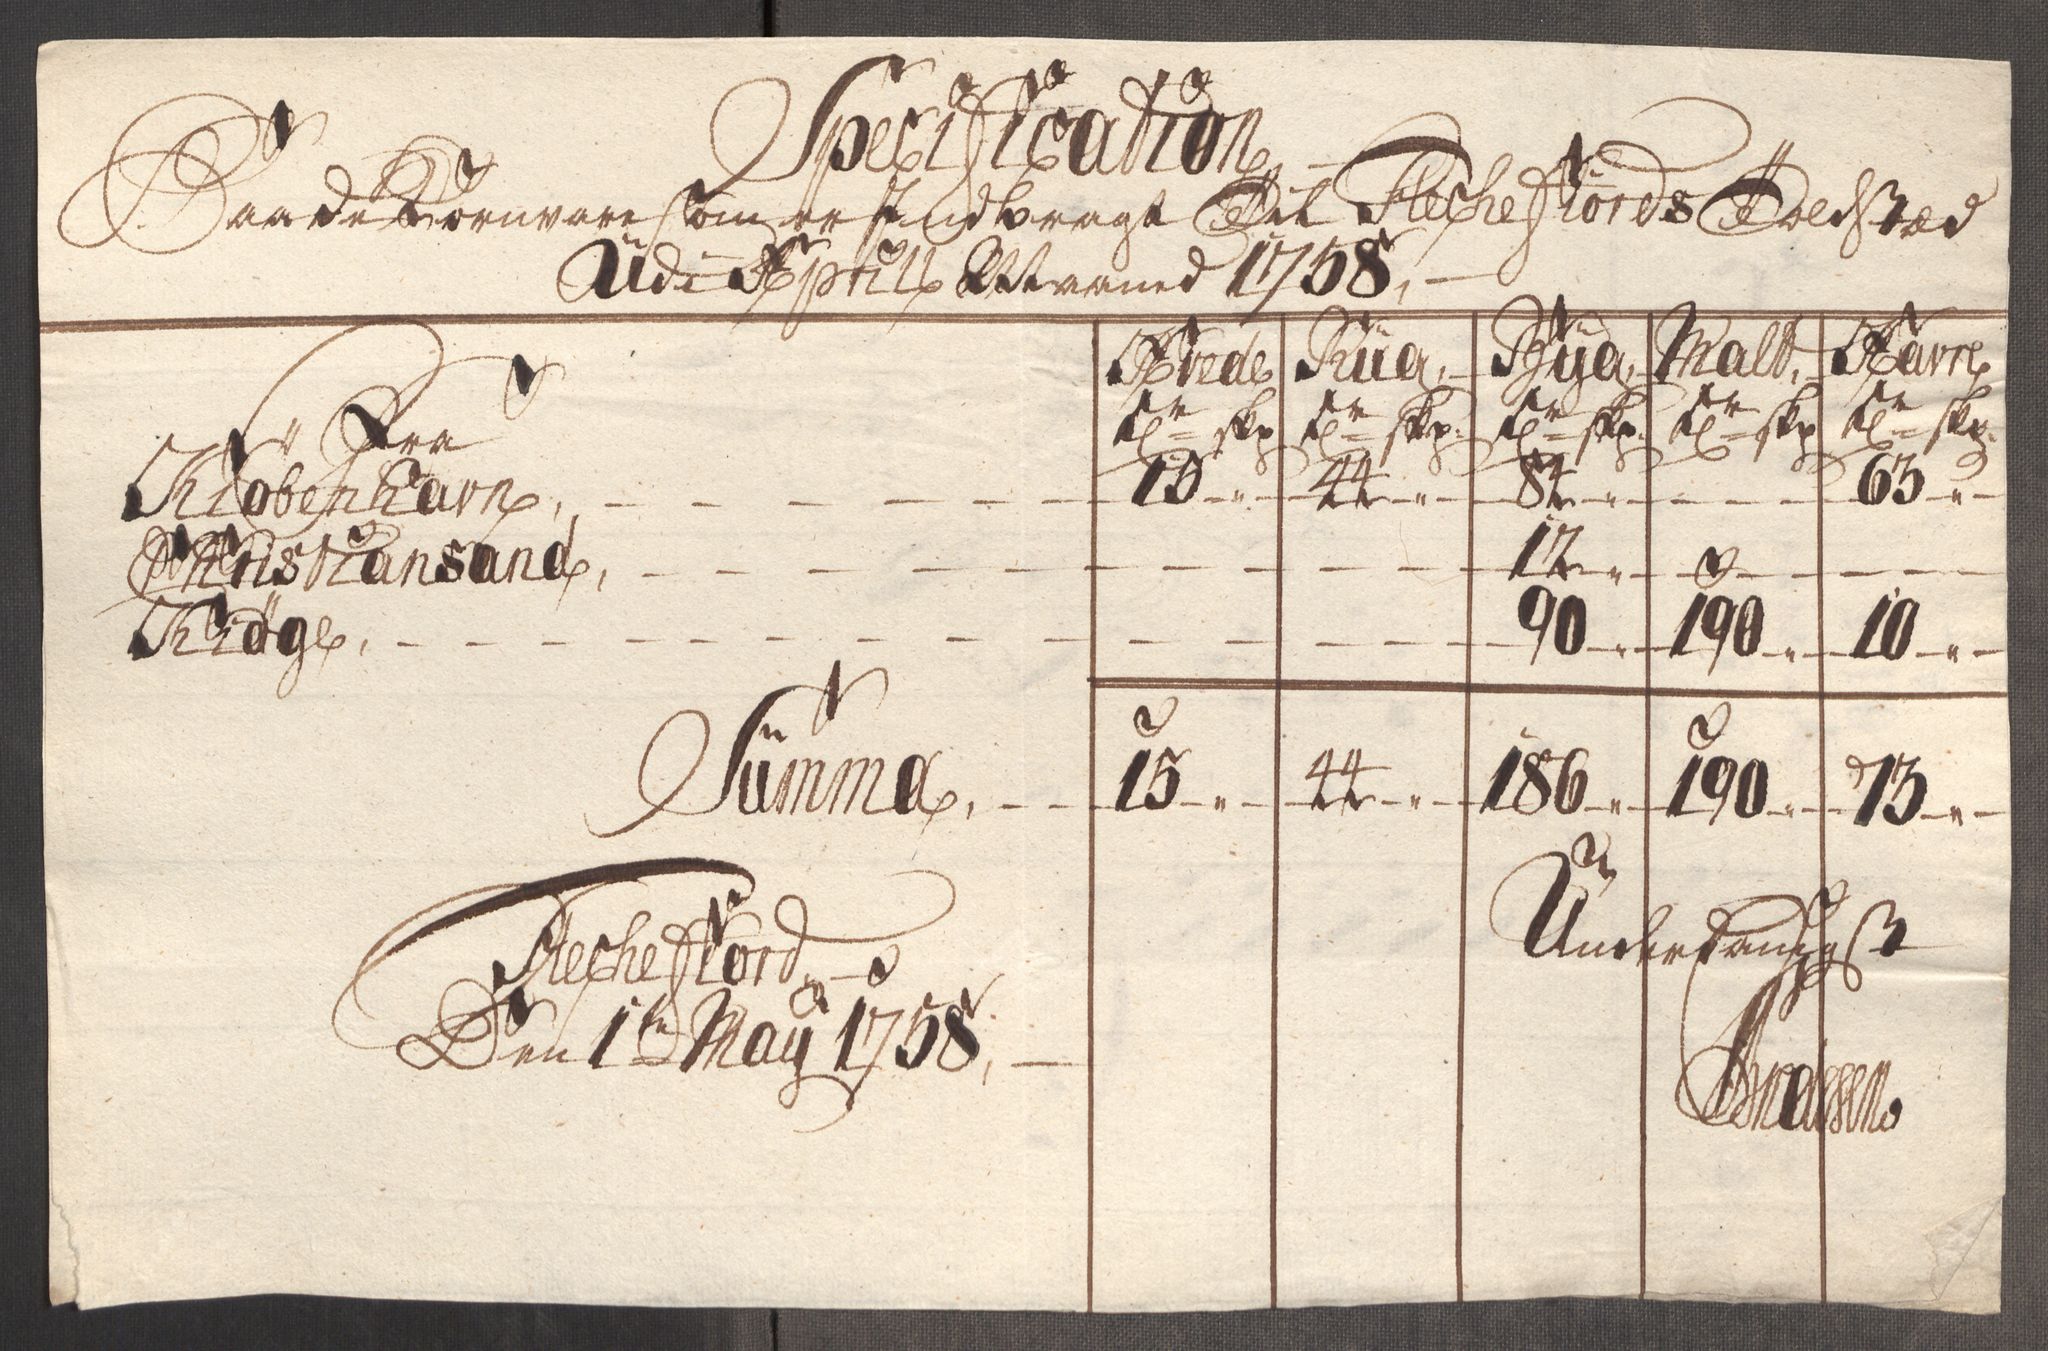 Specification
Paa de Kornvare som er Indbragt Til Flechefiords Toldstæd
Udi Aprill Maaned 1758,
Hvede Rüg, Byg, Malt, Havre
Tr skp Tr skp. Tr skp. Tr skp Tr skp.
Fra
Kiöbenhavn, 15 " 44 " 84 " 63 "
Christiansand, 12 "
Kiöge, 90 " 190 " 10 "
Summa, 15 " 44 " 186 " 190 " 73 "
Flechefiord
Den 1te May 1758,
Underdanigst